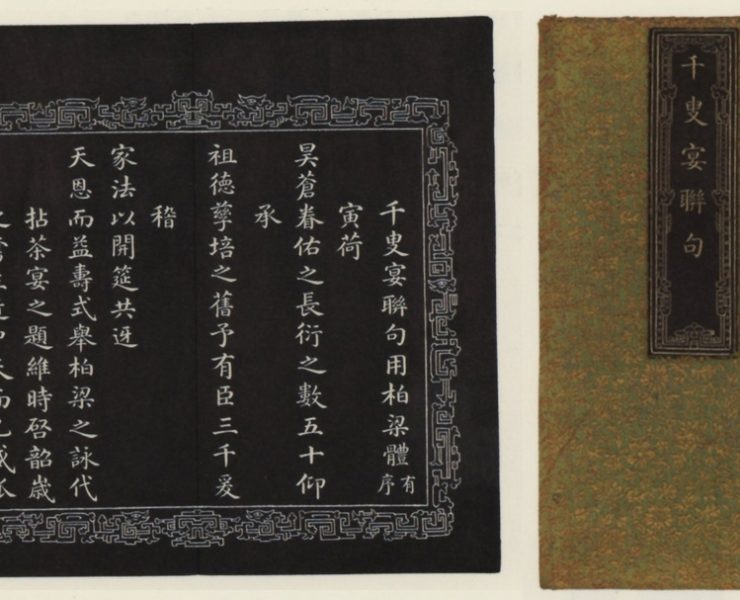 千叟宴聯句
千叟宴聯句用柏梁體有序
寅荷
昊蒼眷佑之長衍之數五十仰
承
祖德孳培之舊予有臣三千爰
稽
家法以開筵共迓
天恩而益壽式舉柏梁之詠代
拈茶宴之題維時启韶歲